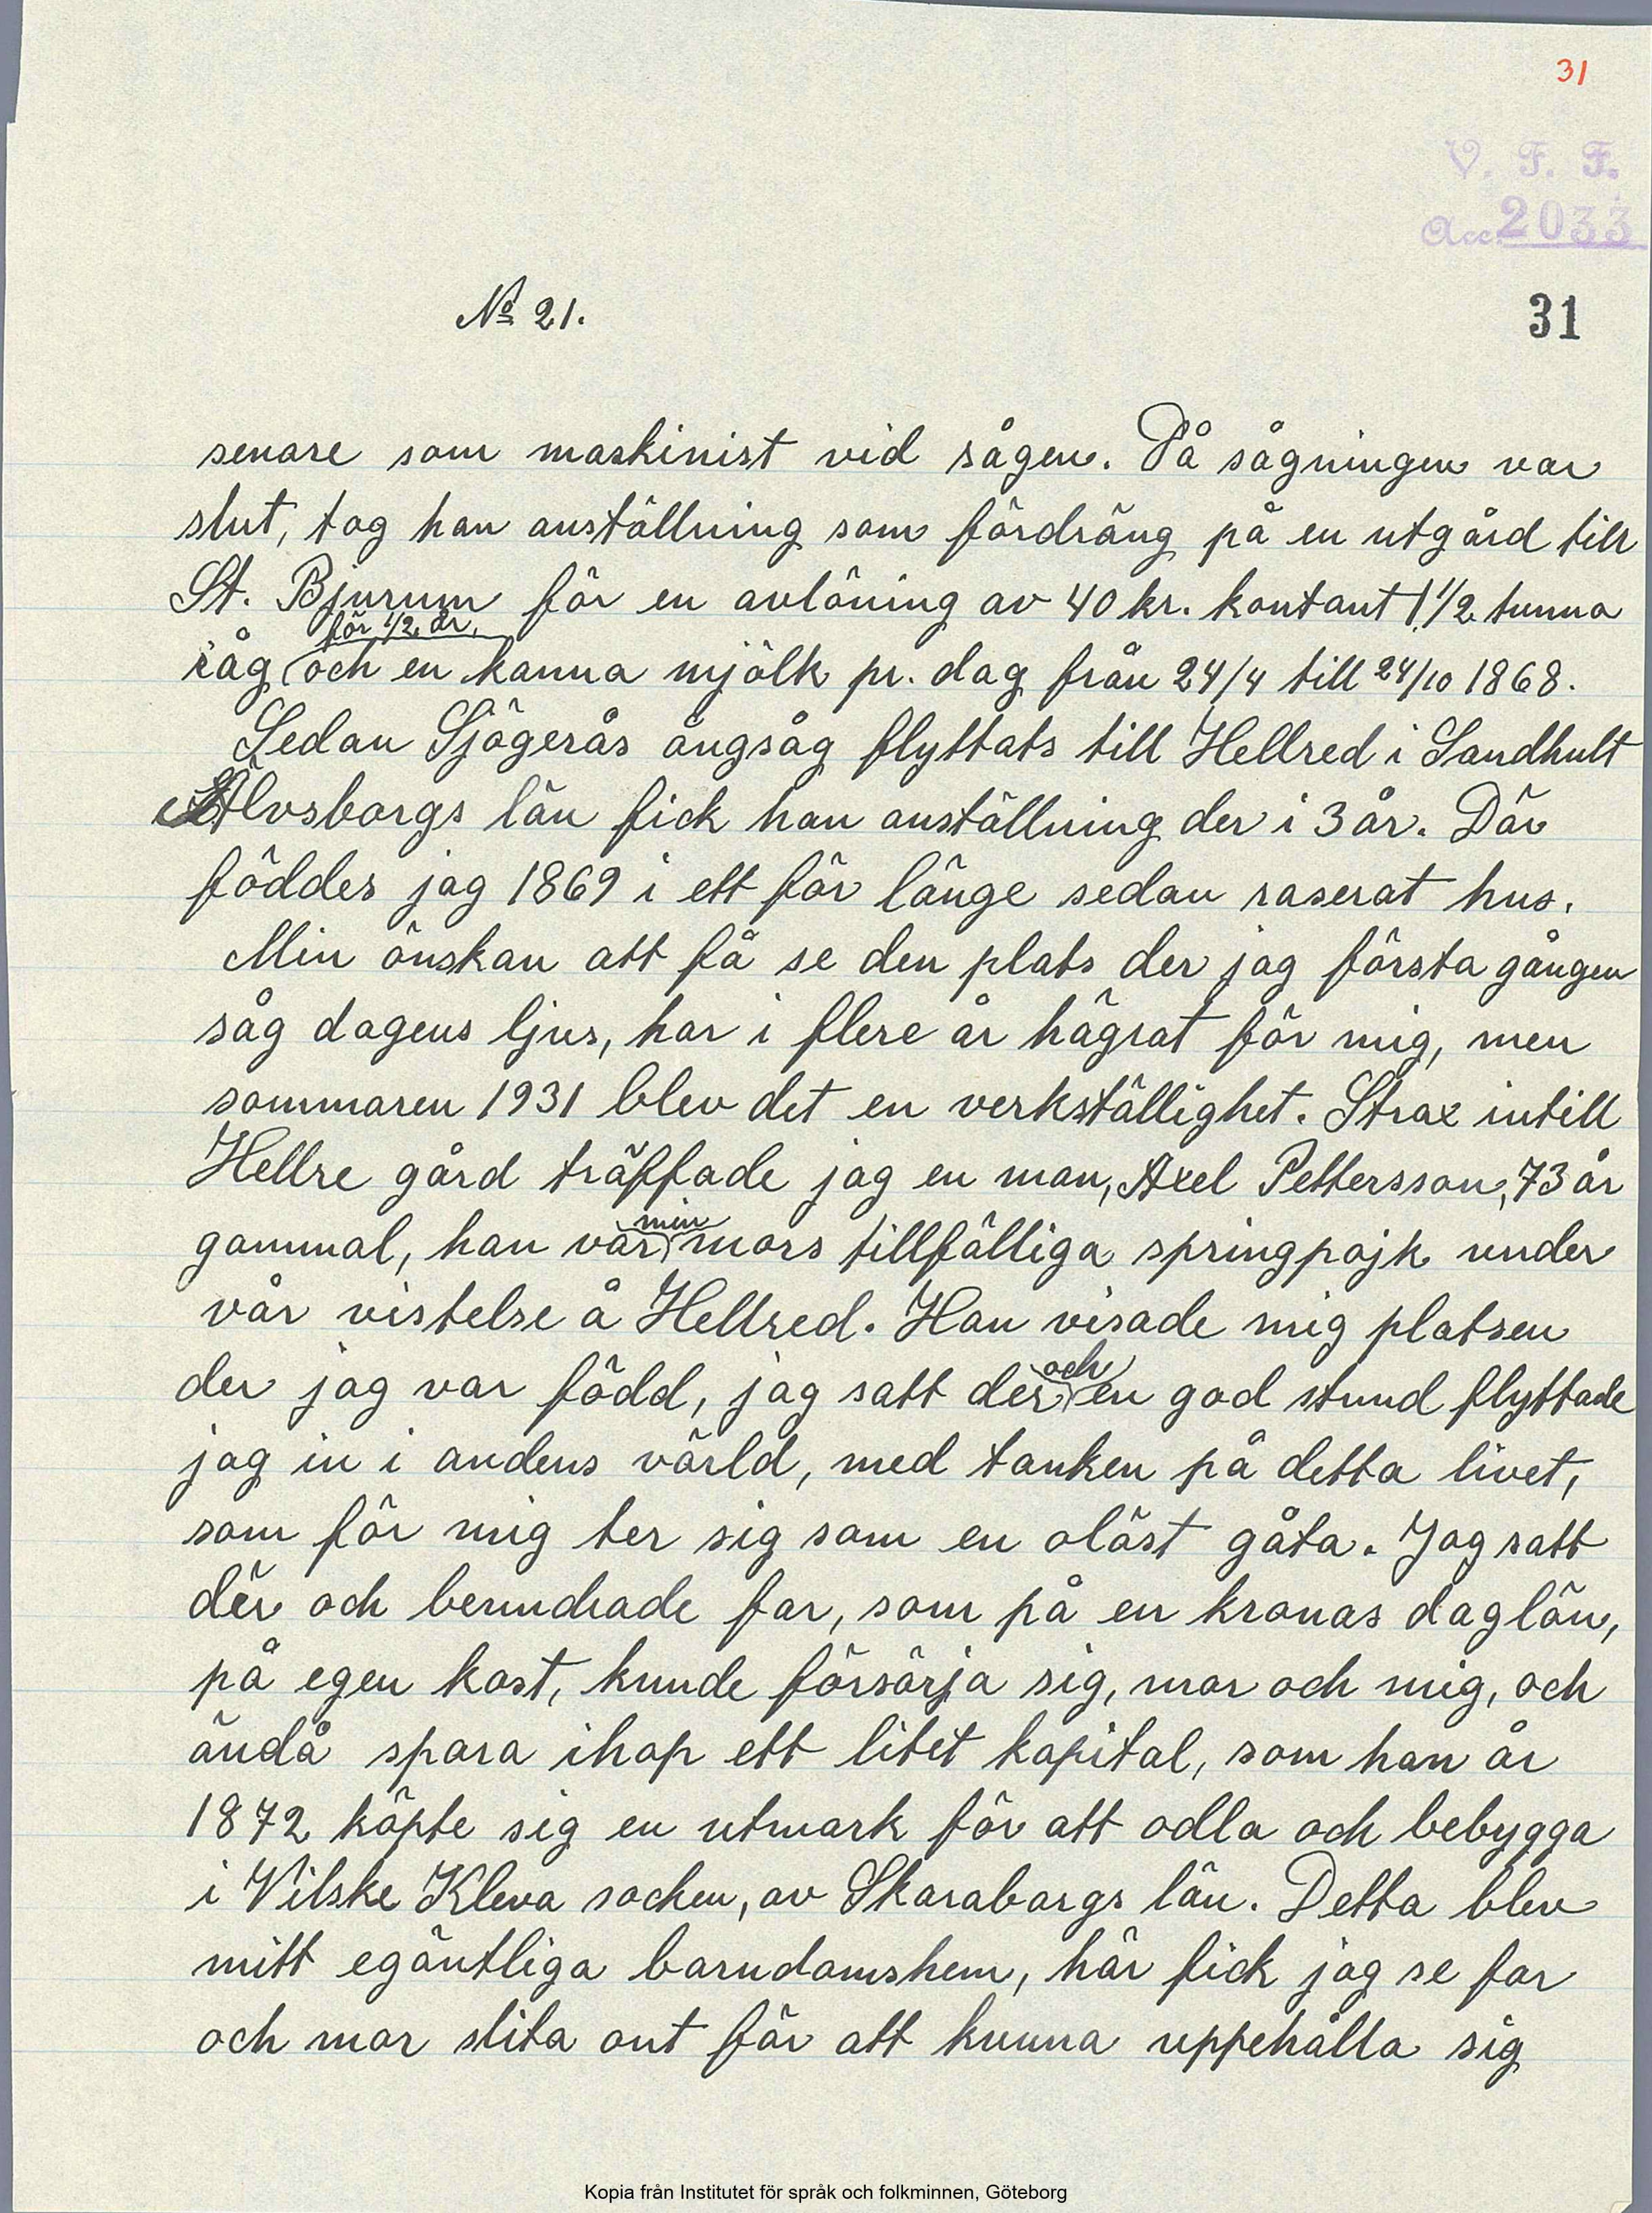 31
V. F. F.
Acc. 2033
No 21.
31
senare som maskinist vid sågen. Då sågningen var
slut, tog han anställning som fördräng på en utgård till
St. Bjurum för en avlöning av 40 kr. kontant 1 1/2 tunna
för 1/2 år,
råg och en kanna mjölk pr. dag från 24/4 till 24/10 1868.
Sedan Sjögerås ångsåg flyttats till Hellred i Sandhult
Älvsborgs län fick han anställning der i 3 år. Där
föddes jag 1869 i ett för länge sedan raserat hus.
Min önskan att få se den plats der jag första gången
såg dagens ljus, har i flere år hägrat för mig, men
sommaren 1931 blev det en verkställighet. Strax intill
Hellre gård träffade jag en man, Axel Pettersson, 73 år
min
gammal, han var mors tillfälliga springpojk under
vår vistelse å Hellred. Han visade mig platsen
och
der jag var född, jag satt der en god stund flyttade
jag in i andens värld, med tanken på detta livet,
som för mig ter sig som en oläst gåta. Jag satt
dër och beundrade far, som på en kronas daglön,
på egen kost, kunde försörja sig, mor och mig, och
ändå spara ihop ett litet kapital, som han år
1872 köpte sig en utmark för att odla och bebygga
i Vilske Kleva socken, av Skaraborgs län. Detta blev
mitt egäntliga barndomshem, här fick jag se far
och mor slita ont för att kunna uppehålla sig
Kopia från Institutet för språk och folkminnen, Göteborg